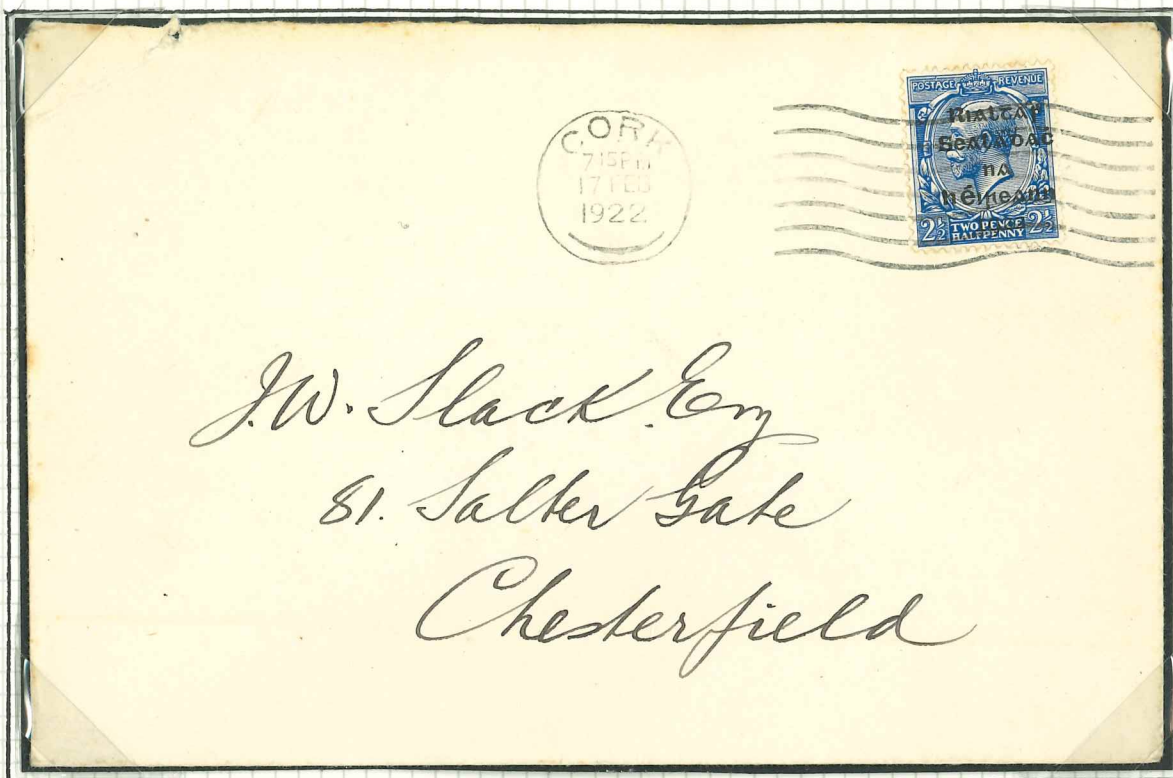 CORK
7 15 PM
17 FEB
1922
POSTAGE REVENUE
Rialtas
Sealadaċ
na
hÉireann
2½ TWO PENCE HALFPENNY 2½
J.W. Slack. Esq
81. Salter Gate
Chesterfield